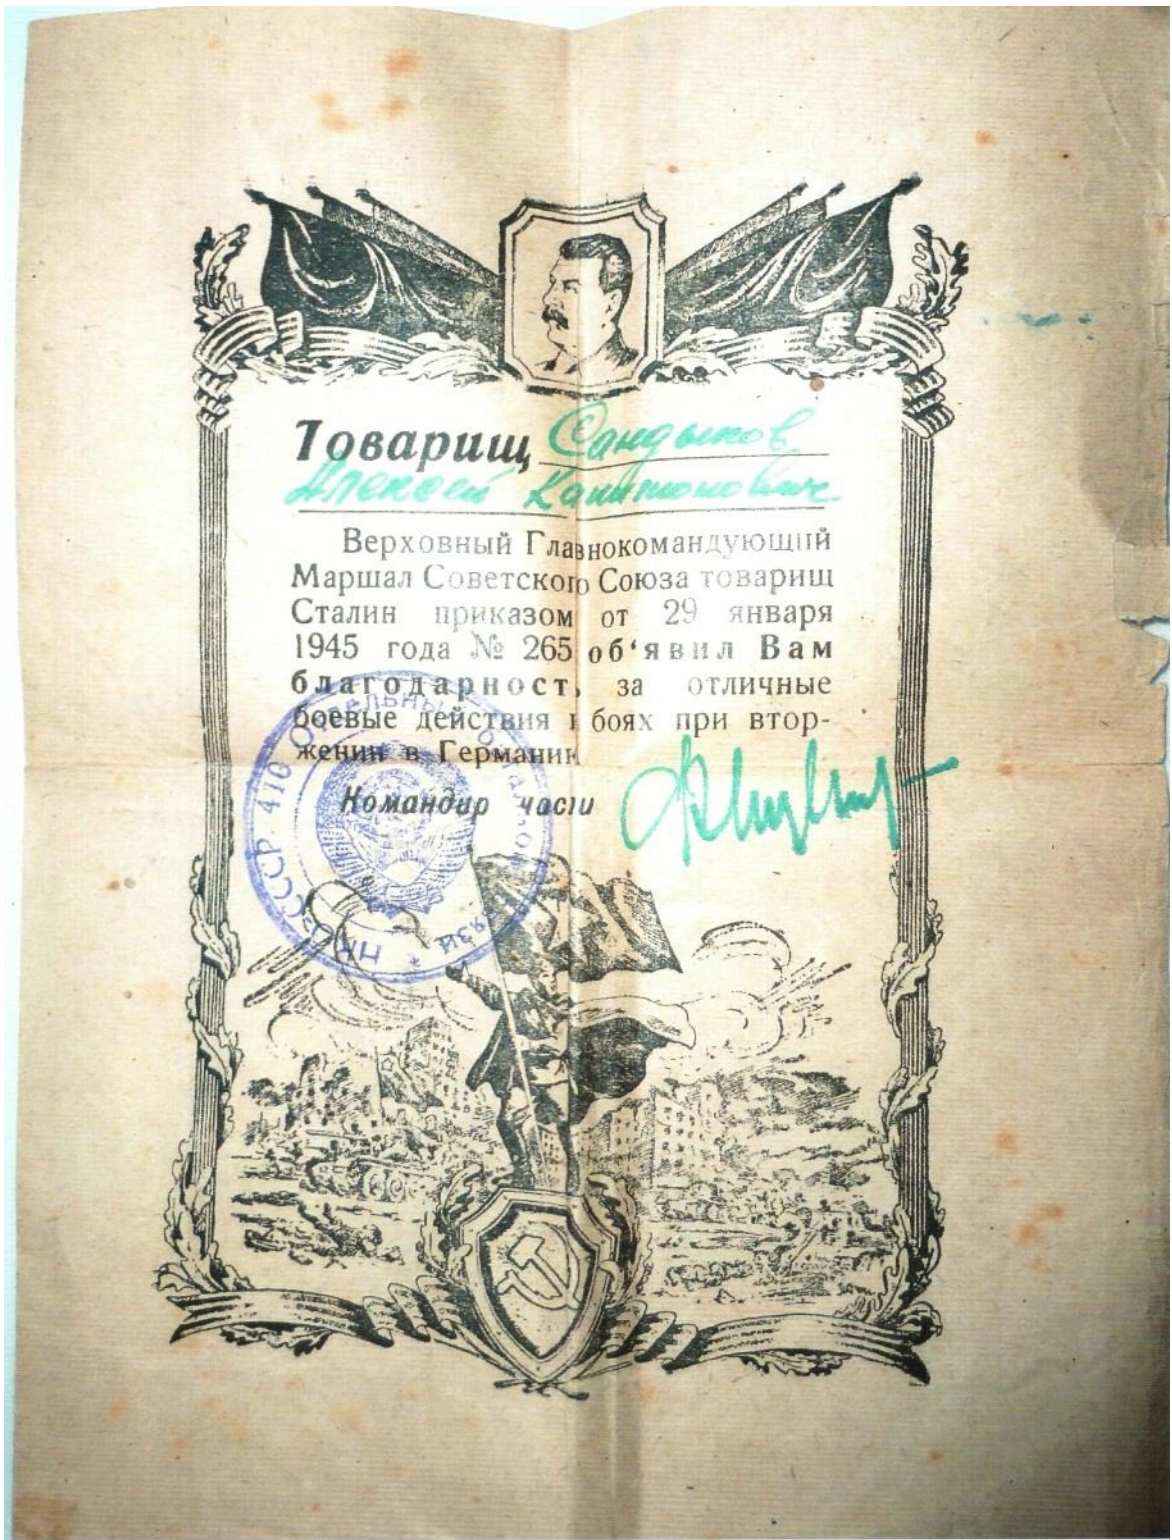 Товарищ Сандыков
Алексей Капитонович
Верховный Главнокомандующий
Маршал Советского Союза товарищ
Сталин приказом от 29 января
1945 года № 265 об‘явил Вам
благодарност, за отличные
боевые действия в боях при втор-
жении в Германию
Командир части
НКО-СССР 410 Отдельный батальон связи *